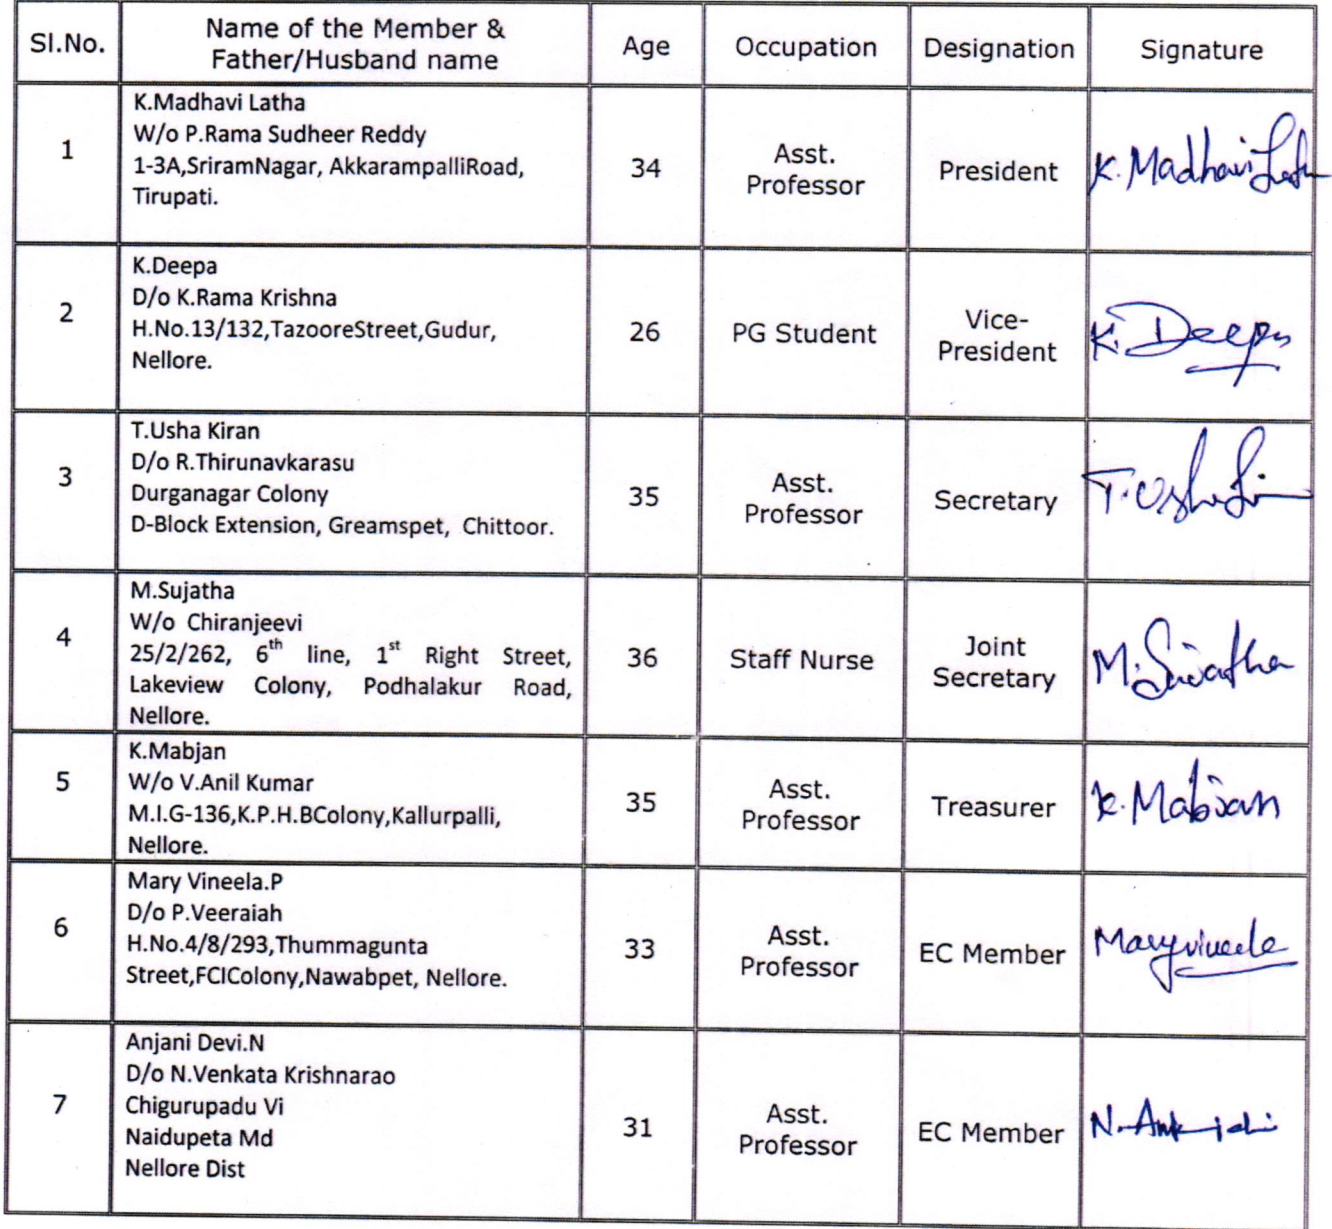 Sl.No. Name of the Member & Father/Husband name Age Occupation Designation Signature
1
K.Madhavi Latha
W/o P.Rama Sudheer Reddy
1-3A,SriramNagar, AkkarampalliRoad,
Tirupati.
34
Asst.
Professor
President
K. Madhavi Latha
2
K.Deepa
D/o K.Rama Krishna
H.No.13/132,TazooreStreet,Gudur,
Nellore.
26
PG Student
Vice-
President
K. Deepa
3
T.Usha Kiran
D/o R.Thirunavkarasu
Durganagar Colony
D-Block Extension, Greamspet, Chittoor.
35
Asst.
Professor
Secretary
T. Usha
4
M.Sujatha
W/o Chiranjeevi
25/2/262, 6th line, 1st Right Street,
Lakeview Colony, Podhalakur Road,
Nellore.
36
Staff Nurse
Joint
Secretary
M. Sujatha
5
K.Mabjan
W/o V.Anil Kumar
M.I.G-136,K.P.H.BColony,Kallurpalli,
Nellore.
35
Asst.
Professor
Treasurer
K. Mabjan
6
Mary Vineela.P
D/o P.Veeraiah
H.No.4/8/293,Thummagunta
Street,FCIColony,Nawabpet, Nellore.
33
Asst.
Professor
EC Member
Mary vineela
7
Anjani Devi.N
D/o N.Venkata Krishnarao
Chigurupadu Vi
Naidupeta Md
Nellore Dist
31
Asst.
Professor
EC Member
N.